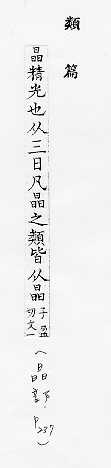 類篇
晶精光也从三日凡晶之類皆从晶子盈切文一(晶部P237)